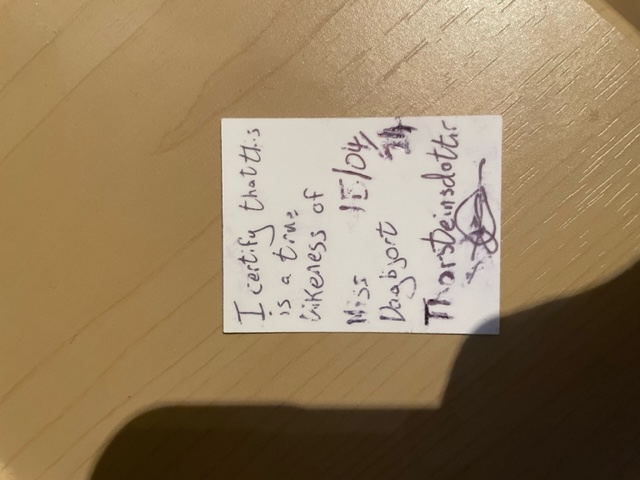 I certify that this
is a true
likeness of
Miss
Dagbjort
Thorsteinsdottir